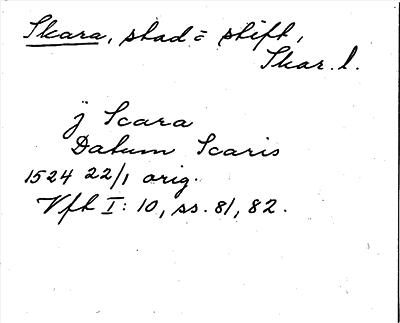 Skara, stad = stift,
Skar. l.
j Scara
Datum Scaris
1524 22/1 orig.
Vft I: 10, ss. 81, 82.